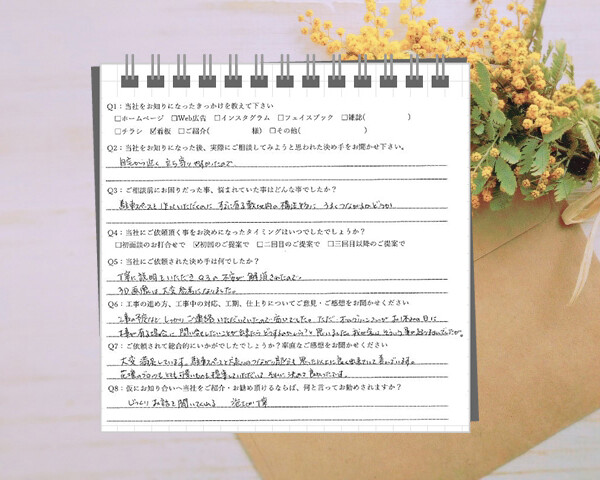 Q1：当社をお知りになったきっかけを教えて下さい
□ホームページ □Web広告 □インスタグラム □フェイスブック □雑誌(　　　)
□チラシ ☑看板 □ご紹介(　　　様) □その他(　　　)
Q2：当社をお知りになった後、実際にご相談してみようと思われた決め手をお聞かせ下さい。
自宅から近く 立ち寄りやすかったので
Q3：ご相談前にお困りだった事、悩まれていた事はどんな事でしたか？
駐車スペースを うまくつながるかどうか
Q4：当社にご依頼頂く事をお決めになったタイミングはいつでしたでしょうか？
□初面談のお打合せで ☑初回のご提案で □二回目のご提案で □三回目以降のご提案で
Q5：当社にご依頼された決め手は何でしたか？
丁寧に説明いただき Q3の不安が 解消されたので。
3D画像は大変 参考になりました。
Q6：工事の進め方、工事中の対応、工期、仕上りについてご意見・ご感想をお聞かせください
しっかりご連絡いただいていたので ただ お休みの日に
工事が有る場合に 問い合せしたいことが と思いました。
Q7：ご依頼されて総合的にいかがでしたでしょうか？率直なご感想をお聞かせください
大変 満足しています。駐車スペースと 良く出来ていて 喜んでいます。
花壇のブロックも とても可愛いものを 提案していただき
Q8：仮にお知り合いへ当社をご紹介・お勧め頂けるならば、何と言ってお勧めされますか？
じっくり お話を聞いてくれる 丁寧